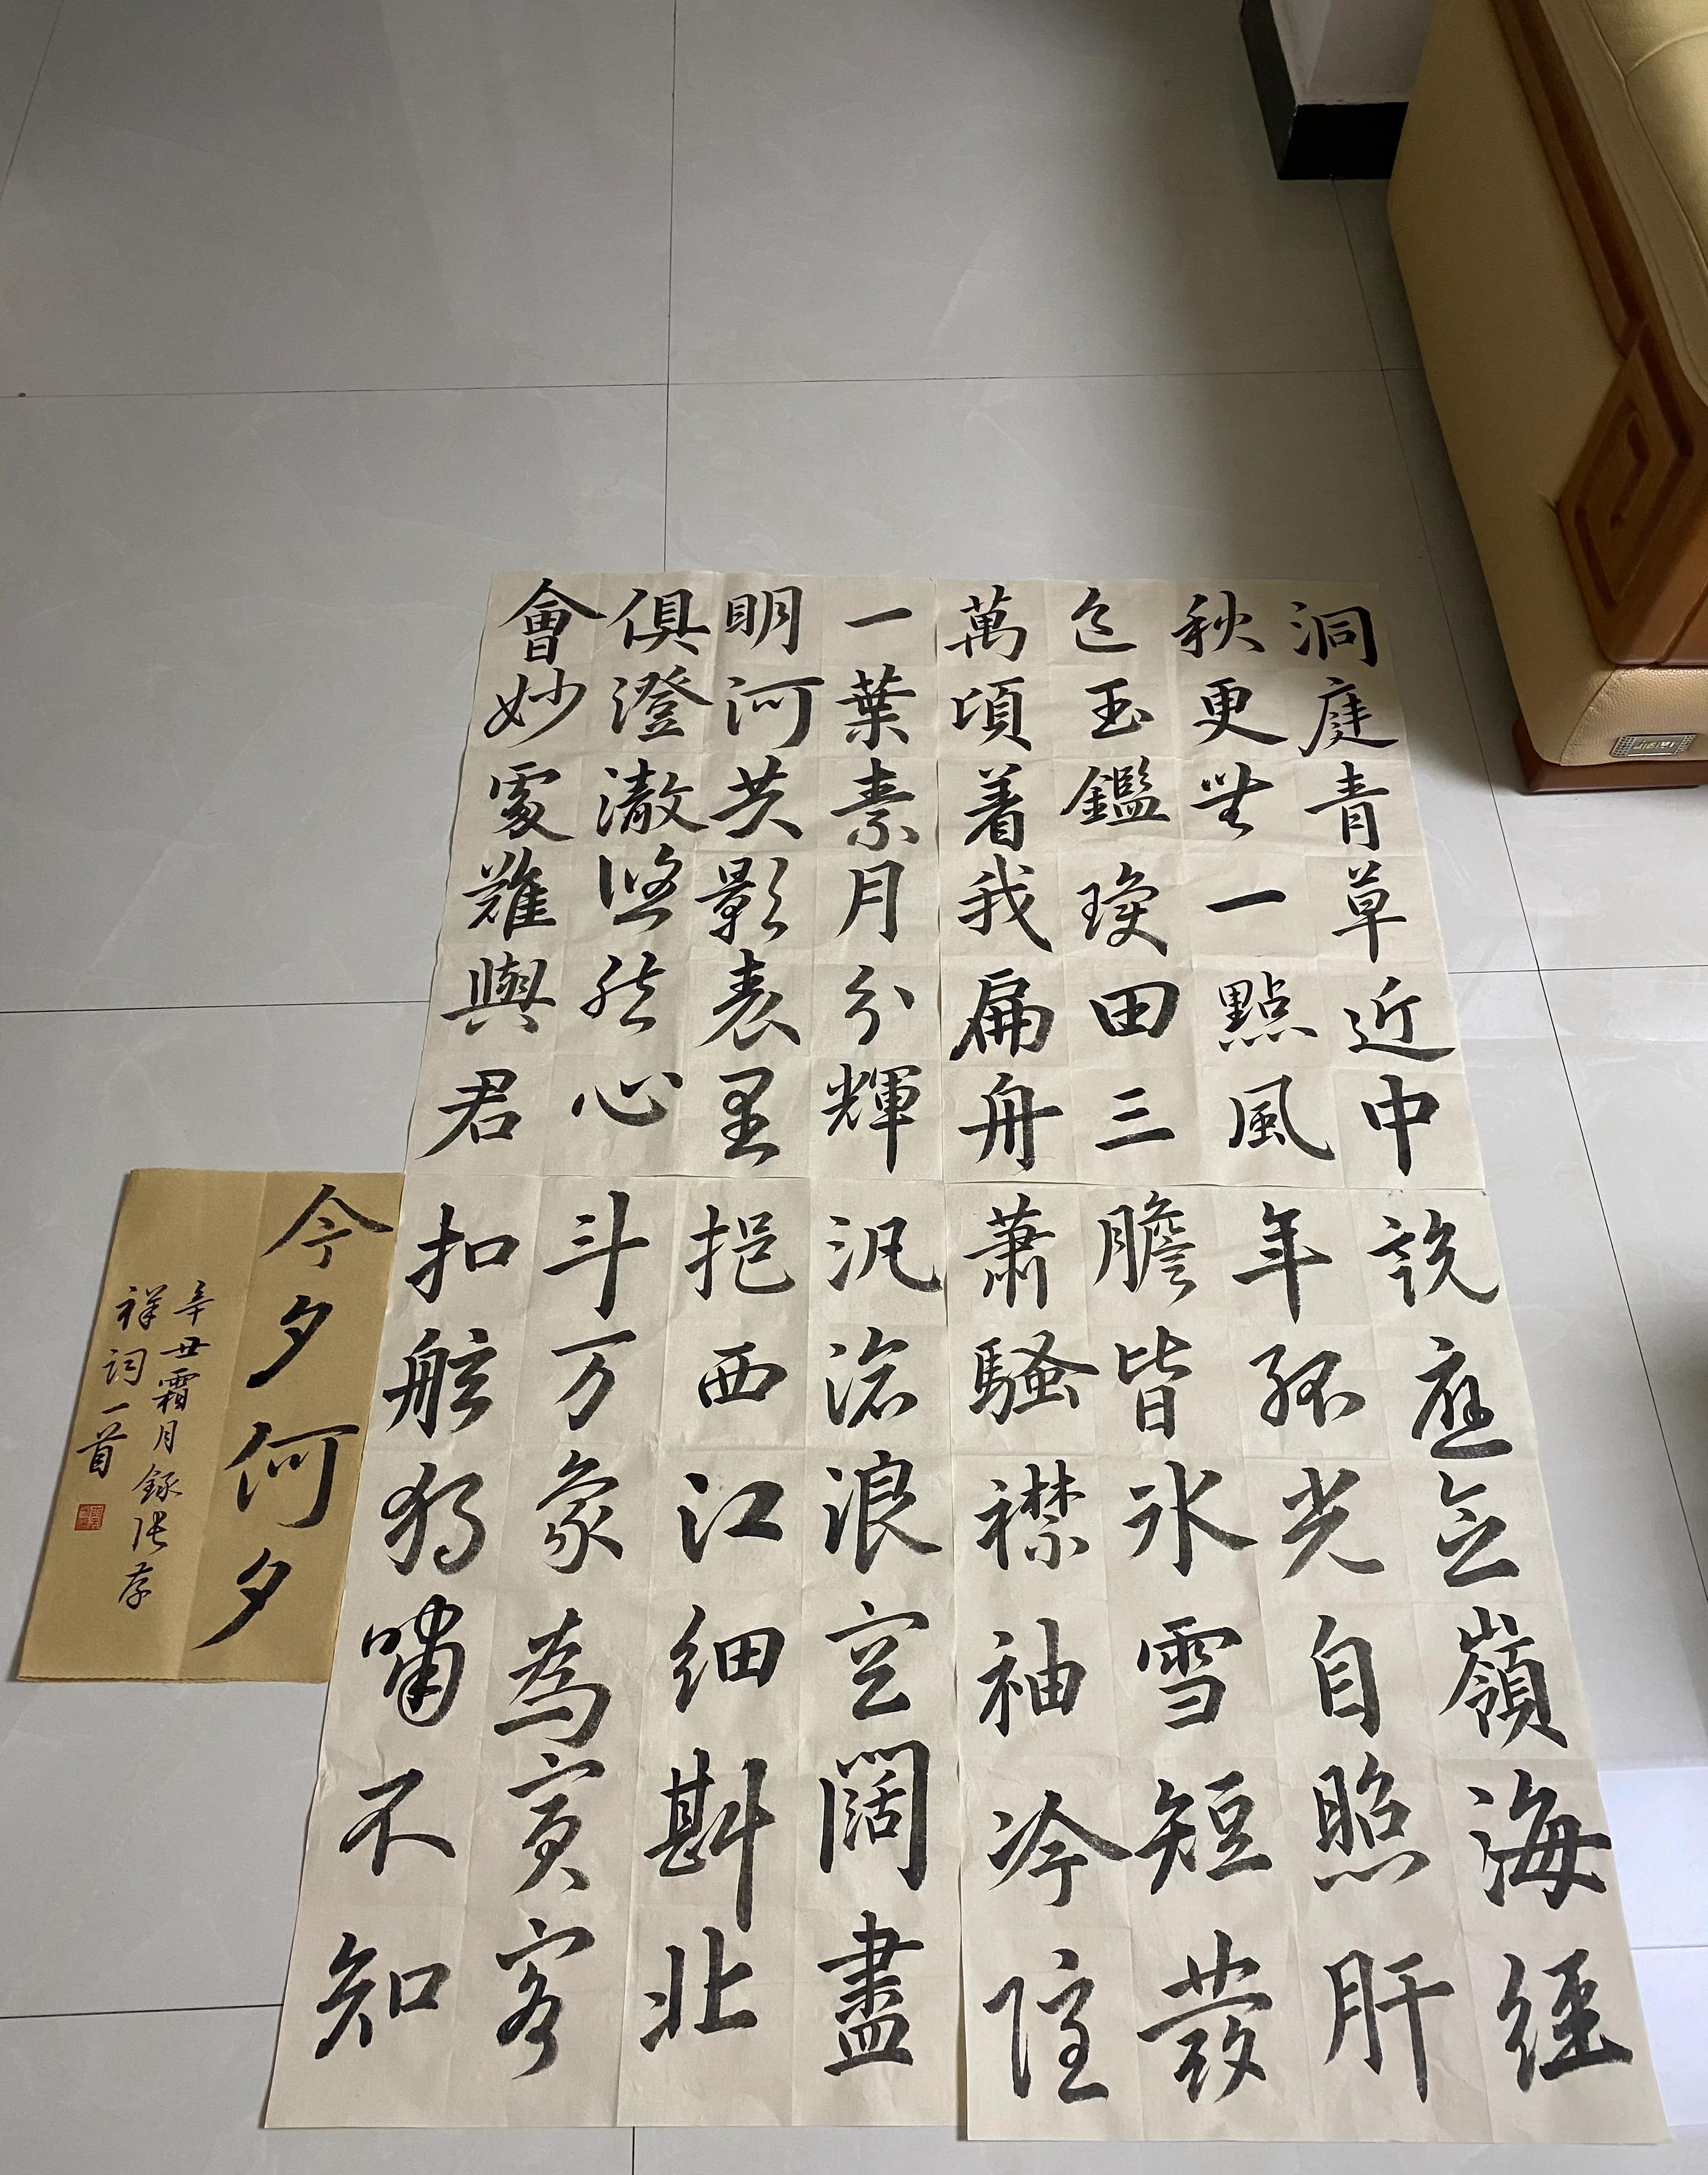 洞庭青草近中
秋更無一點風
色玉鑑瓊田三
萬頃着我扁舟
一葉素月分輝
明河共影表里
俱澄澈悠然心
會妙處難與君
說應念嶺海經
年孤光自照肝
膽皆氷雪短發
蕭騷襟袖冷穩
汎滄浪空闊盡
挹西江細斟北
斗万象為賓客
扣舷獨嘯不知
今夕何夕
辛丑霜月錄張孝
祥詞一首